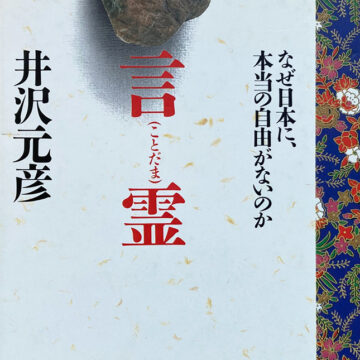 なぜ日本に、
本当の自由がないのか
言霊
(ことだま)
井沢元彦